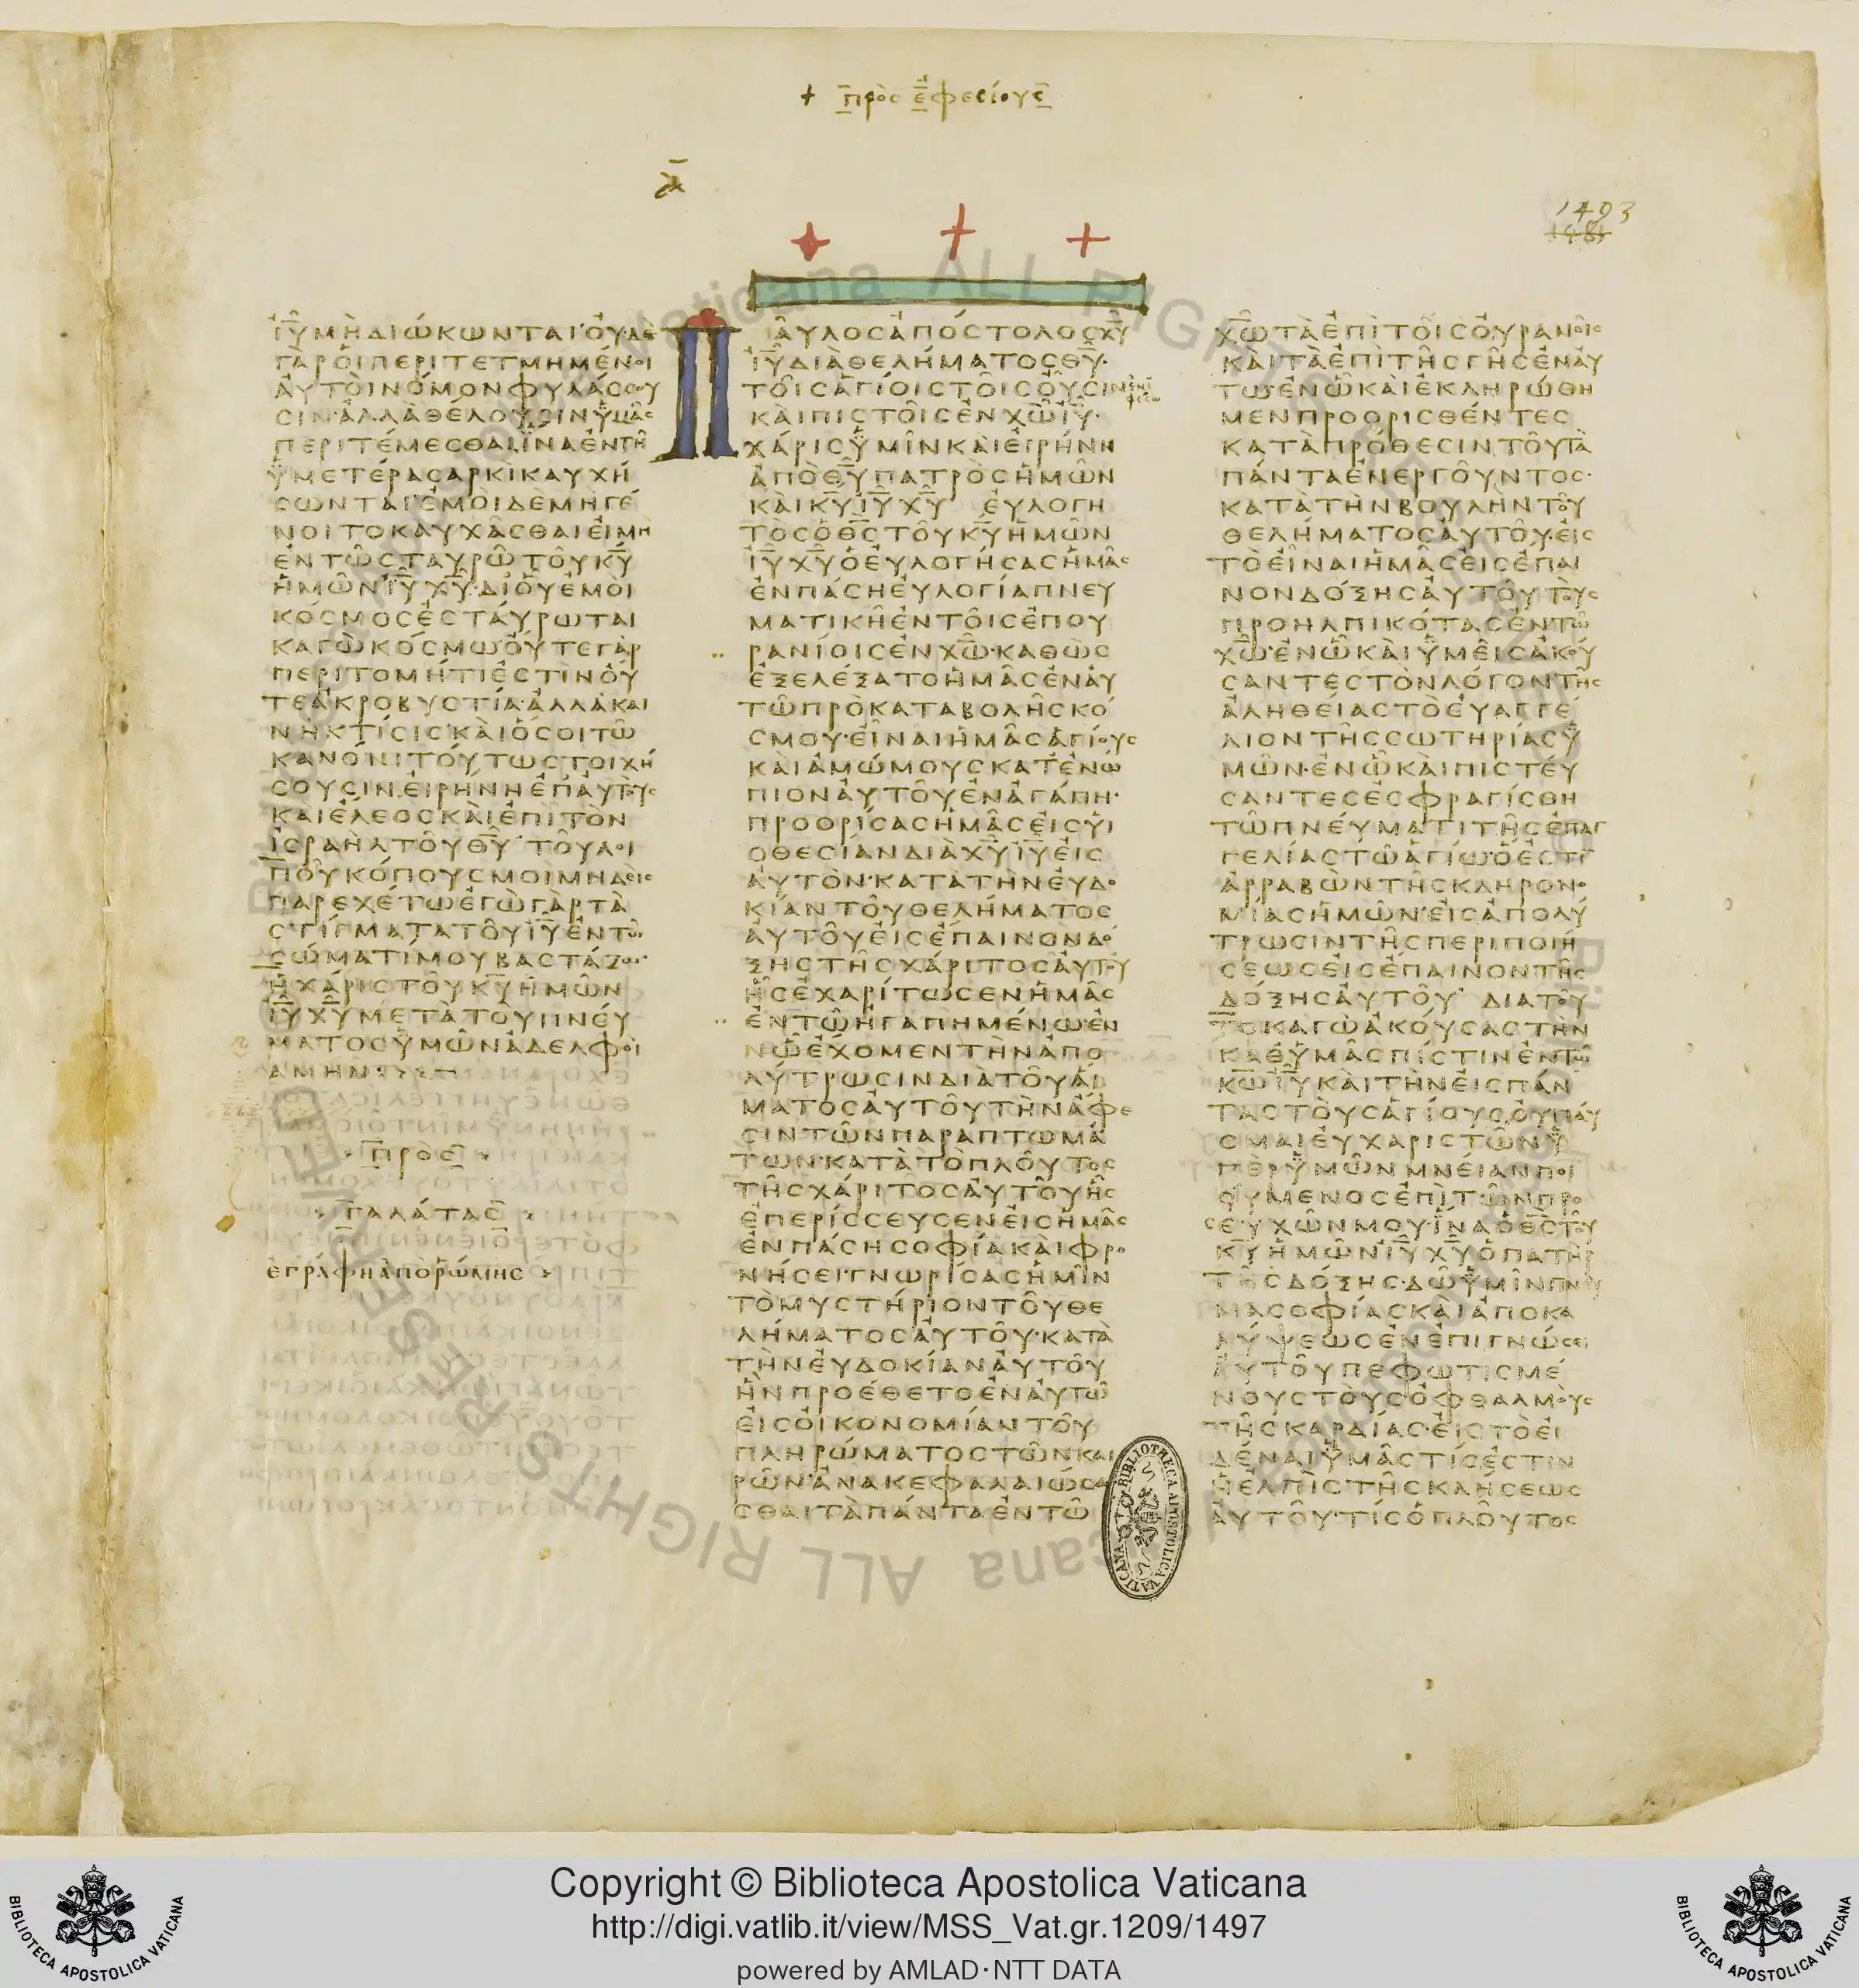 + πρὸς ἐφεσίους
1493
ΙΥΜΗΔΙΩΚΩΝΤΑΙΟΥΔΕ
ΓΑΡΟΙΠΕΡΙΤΕΤΜΗΜΕΝΟΙ
ΑΥΤΟΙΝΟΜΟΝΦΥΛΑΣΣΟΥ
ΣΙΝ·ΑΛΛΑΘΕΛΟΥΣΙΝΥΜΑΣ
ΠΕΡΙΤΕΜΕΣΘΑΙ·ΙΝΑΕΝΤΗ
ΥΜΕΤΕΡΑΣΑΡΚΙΚΑΥΧΗ
ΣΩΝΤΑΙ·ΕΜΟΙΔΕΜΗΓΕ
ΝΟΙΤΟΚΑΥΧΑΣΘΑΙΕΙΜΗ
ΕΝΤΩΣΤΑΥΡΩΤΟΥΚΥ
ΗΜΩΝΙΥΧΥ·ΔΙΟΥΕΜΟΙ
ΚΟΣΜΟΣΕΣΤΑΥΡΩΤΑΙ
ΚΑΓΩΚΟΣΜΩ·ΟΥΤΕΓΑΡ
ΠΕΡΙΤΟΜΗΤΙΕΣΤΙΝΟΥ
ΤΕΑΚΡΟΒΥΣΤΙΑ·ΑΛΛΑΚΑΙ
ΝΗΚΤΙΣΙΣ·ΚΑΙΟΣΟΙΤΩ
ΚΑΝΟΝΙΤΟΥΤΩΣΤΟΙΧΗ
ΣΟΥΣΙΝ·ΕΙΡΗΝΗΕΠΑΥΤΟΥΣ
ΚΑΙΕΛΕΟΣΚΑΙΕΠΙΤΟΝ
ΙΣΡΑΗΛΤΟΥΘΥ ΤΟΥΛΟΙ
ΠΟΥΚΟΠΟΥΣΜΟΙΜΗΔΕΙΣ
ΠΑΡΕΧΕΤΩΕΓΩΓΑΡΤΑ
ΣΤΙΓΜΑΤΑΤΟΥΙΥΕΝΤΩ
ΣΩΜΑΤΙΜΟΥΒΑΣΤΑΖΩ·
ΗΧΑΡΙΣΤΟΥΚΥΗΜΩΝ
ΙΥΧΥΜΕΤΑΤΟΥΠΝΕΥ
ΜΑΤΟΣΥΜΩΝΑΔΕΛΦΟΙ
ΑΜΗΝ
ΠΡΟΣ
ΓΑΛΑΤΑΣ
ΕΓΡΑΦΗΑΠΟΡΩΜΗΣ
ΠΑΥΛΟΣΑΠΟΣΤΟΛΟΣΧΥ
ΙΥΔΙΑΘΕΛΗΜΑΤΟΣΘΥ·
ΤΟΙΣΑΓΙΟΙΣΤΟΙΣΟΥΣΙΝ ἐν ἐφέσω
ΚΑΙΠΙΣΤΟΙΣΕΝΧΩΙΥ·
ΧΑΡΙΣΥΜΙΝΚΑΙΕΙΡΗΝΗ
ΑΠΟΘΥΠΑΤΡΟΣΗΜΩΝ
ΚΑΙΚΥΙΥΧΥ ΕΥΛΟΓΗ
ΤΟΣΟΘΣΤΟΥΚΥΗΜΩΝ
ΙΥΧΥΟΕΥΛΟΓΗΣΑΣΗΜΑΣ
ΕΝΠΑΣΗΕΥΛΟΓΙΑΠΝΕΥ
ΜΑΤΙΚΗΕΝΤΟΙΣΕΠΟΥ
ΡΑΝΙΟΙΣΕΝΧΩ·ΚΑΘΩΣ
ΕΞΕΛΕΞΑΤΟΗΜΑΣΕΝΑΥ
ΤΩΠΡΟΚΑΤΑΒΟΛΗΣΚΟ
ΣΜΟΥ·ΕΙΝΑΙΗΜΑΣΑΓΙΟΥΣ
ΚΑΙΑΜΩΜΟΥΣΚΑΤΕΝΩ
ΠΙΟΝΑΥΤΟΥΕΝΑΓΑΠΗ·
ΠΡΟΟΡΙΣΑΣΗΜΑΣΕΙΣΥΙ
ΟΘΕΣΙΑΝΔΙΑΧΥΙΥΕΙΣ
ΑΥΤΟΝ·ΚΑΤΑΤΗΝΕΥΔΟ
ΚΙΑΝΤΟΥΘΕΛΗΜΑΤΟΣ
ΑΥΤΟΥΕΙΣΕΠΑΙΝΟΝΔΟ
ΞΗΣΤΗΣΧΑΡΙΤΟΣΑΥΤΟΥ
ΗΣΕΧΑΡΙΤΩΣΕΝΗΜΑΣ
ΕΝΤΩΗΓΑΠΗΜΕΝΩ·ΕΝ
ΝΩΕΧΟΜΕΝΤΗΝΑΠΟ
ΛΥΤΡΩΣΙΝΔΙΑΤΟΥΑΙ
ΜΑΤΟΣΑΥΤΟΥΤΗΝΑΦΕ
ΣΙΝΤΩΝΠΑΡΑΠΤΩΜΑ
ΤΩΝ·ΚΑΤΑΤΟΠΛΟΥΤΟΣ
ΤΗΣΧΑΡΙΤΟΣΑΥΤΟΥΗΣ
ΕΠΕΡΙΣΣΕΥΣΕΝΕΙΣΗΜΑΣ
ΕΝΠΑΣΗΣΟΦΙΑΚΑΙΦΡΟ
ΝΗΣΕΙ·ΓΝΩΡΙΣΑΣΗΜΙΝ
ΤΟΜΥΣΤΗΡΙΟΝΤΟΥΘΕ
ΛΗΜΑΤΟΣΑΥΤΟΥ·ΚΑΤΑ
ΤΗΝΕΥΔΟΚΙΑΝΑΥΤΟΥ
ΗΝΠΡΟΕΘΕΤΟΕΝΑΥΤΩ
ΕΙΣΟΙΚΟΝΟΜΙΑΝΤΟΥ
ΠΛΗΡΩΜΑΤΟΣΤΩΝΚΑΙ
ΡΩΝ·ΑΝΑΚΕΦΑΛΑΙΩΣΑ
ΣΘΑΙΤΑΠΑΝΤΑΕΝΤΩ
ΧΩΤΑΕΠΙΤΟΙΣΟΥΡΑΝΟΙΣ
ΚΑΙΤΑΕΠΙΤΗΣΓΗΣΕΝΑΥ
ΤΩ·ΕΝΩΚΑΙΕΚΛΗΡΩΘΗ
ΜΕΝΠΡΟΟΡΙΣΘΕΝΤΕΣ
ΚΑΤΑΠΡΟΘΕΣΙΝΤΟΥΤΑ
ΠΑΝΤΑΕΝΕΡΓΟΥΝΤΟΣ·
ΚΑΤΑΤΗΝΒΟΥΛΗΝΤΟΥ
ΘΕΛΗΜΑΤΟΣΑΥΤΟΥ·ΕΙΣ
ΤΟΕΙΝΑΙΗΜΑΣΕΙΣΕΠΑΙ
ΝΟΝΔΟΞΗΣΑΥΤΟΥΤΟΥΣ
ΠΡΟΗΛΠΙΚΟΤΑΣΕΝΤΩ
ΧΩ·ΕΝΩΚΑΙΥΜΕΙΣΑΚΟΥ
ΣΑΝΤΕΣΤΟΝΛΟΓΟΝΤΗΣ
ΑΛΗΘΕΙΑΣΤΟΕΥΑΓΓΕ
ΛΙΟΝΤΗΣΣΩΤΗΡΙΑΣΥ
ΜΩΝ·ΕΝΩΚΑΙΠΙΣΤΕΥ
ΣΑΝΤΕΣΕΣΦΡΑΓΙΣΘΗ
ΤΩΠΝΕΥΜΑΤΙΤΗΣΕΠΑΓ
ΓΕΛΙΑΣΤΩΑΓΙΩ·ΟΕΣΤΙ
ΑΡΡΑΒΩΝΤΗΣΚΛΗΡΟΝΟ
ΜΙΑΣΗΜΩΝ·ΕΙΣΑΠΟΛΥ
ΤΡΩΣΙΝΤΗΣΠΕΡΙΠΟΙΗ
ΣΕΩΣΕΙΣΕΠΑΙΝΟΝΤΗΣ
ΔΟΞΗΣΑΥΤΟΥ· ΔΙΑΤΟΥ
ΤΟΚΑΓΩΑΚΟΥΣΑΣΤΗΝ
ΚΑΘΥΜΑΣΠΙΣΤΙΝΕΝΤΩ
ΚΩΙΥΚΑΙΤΗΝΕΙΣΠΑΝ
ΤΑΣΤΟΥΣΑΓΙΟΥΣ·ΟΥΠΑΥ
ΟΜΑΙΕΥΧΑΡΙΣΤΩΝΥ
ΠΕΡΥΜΩΝΜΝΕΙΑΝΠΟΙ
ΟΥΜΕΝΟΣΕΠΙΤΩΝΠΡΟ
ΣΕΥΧΩΝΜΟΥ·ΙΝΑΟΘΣΤΟΥ
ΚΥΗΜΩΝΙΥΧΥΟΠΑΤΗΡ
ΤΗΣΔΟΞΗΣ·ΔΩΥΜΙΝΠΝΕΥ
ΜΑΣΟΦΙΑΣΚΑΙΑΠΟΚΑ
ΛΥΨΕΩΣΕΝΕΠΙΓΝΩΣΕΙ
ΑΥΤΟΥΠΕΦΩΤΙΣΜΕ
ΝΟΥΣΤΟΥΣΟΦΘΑΛΜΟΥΣ
ΤΗΣΚΑΡΔΙΑΣ·ΕΙΣΤΟΕΙ
ΔΕΝΑΙΥΜΑΣΤΙΣΕΣΤΙΝ
ΗΕΛΠΙΣΤΗΣΚΛΗΣΕΩΣ
ΑΥΤΟΥ·ΤΙΣΟΠΛΟΥΤΟΣ
BIBLIOTHECA APOSTOLICA VATICANA
Copyright © Biblioteca Apostolica Vaticana
http://digi.vatlib.it/view/MSS_Vat.gr.1209/1497
powered by AMLAD·NTT DATA
BIBLIOTECA APOSTOLICA VATICANA
BIBLIOTECA APOSTOLICA VATICANA